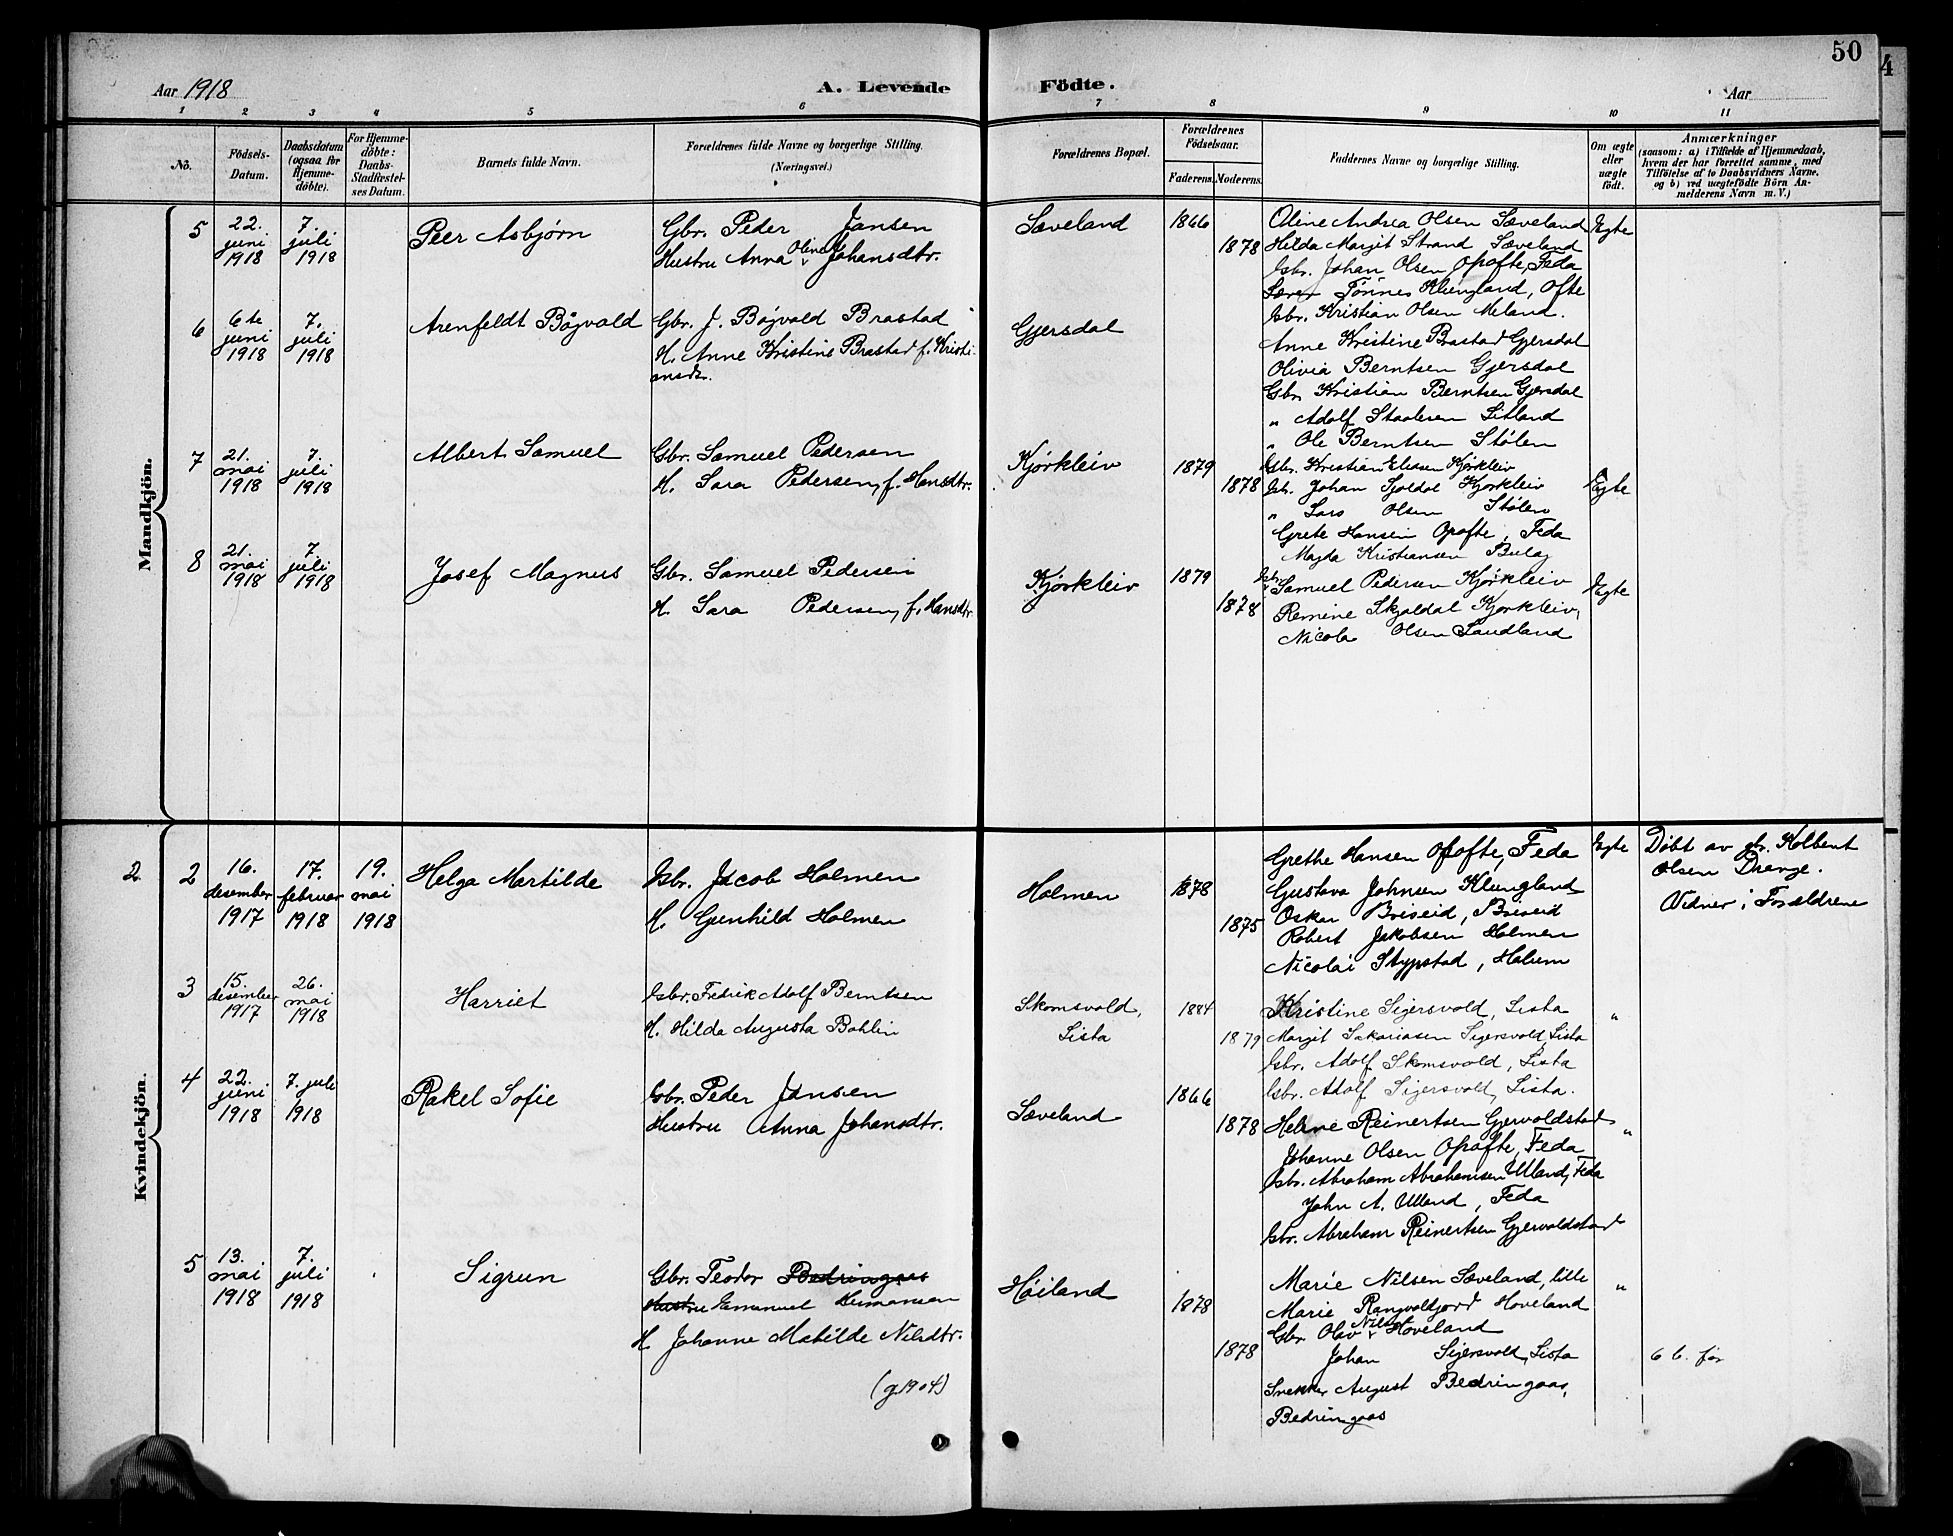 50
4
Aar 1918
A. Levende Födte.
Aar
1 2 3 4 5 6 7 8 9 10 11
No.
Födsels-Datum.
Daabsdatum (ogsaa för Hjemme-döbte).
For Hjemme-döbte: Daabs-Stadfæstel-ses Datum.
Barnets fulde Navn.
Forældrenes fulde Navne og borgerlige Stilling.
(Næringsvei.)
Forældrenes Bopæl.
Forældrenes Födselsaar.
Faderens. Moderens.
Faddernes Navne og borgerlige Stilling.
Om ægte eller uægte födt.
Anmærkninger
(saasom: a) i Tilfælde af Hjemmedaab,
hvem der har forrettet samme, med
Tilföielse af to Daabsvidners Navne,
og b) ved uægtefödte Börn An-
melderens Navn m. V.)
Mandkjön.
5
22. juni 1918
7. juli 1918
Peer Asbjørn
Gbr. Peder Jansen
Hustru Anna Oline Johansdtr.
Sæveland
1866
1878
Oline Andrea Olsen Sæveland
Hilda Margit Strand Sæveland
Gbr. Johan Olsen Opofte, Feda
Tönnes Klungland, Ofte
Gbr. Kristian Olsen Meland.
Egte
6
6te juni 1918
7. juli 1918
Arenfeldt Bågvald
Gbr. J. Bågvald Brastad
H. Anne Kristine Brastad f. Kristi-
ansdr.
Gjersdal
Anne Kristine Brastad Gjersdal
Olivia Berntsen Gjersdal
Gbr. Kristian Berntsen Gjersdal
" Adolf Staalesen Litland
" Ole Berntsen Stölen
7
21. mai 1918
7. juli 1918
Albert Samuel
Gbr. Samuel Pedersen
H. Sara Pedersen, f. Hansdtr.
Kjørkleiv
1879
1878
Gbr. Kristian Eliasen Kjørkleiv
Gbr. Johan Sjoldal Kjørkleiv
" Lars Olsen Stölen
Grete Hansen Opofte, Feda
Magda Kristiansen
Egte
8
21. mai 1918
7. juli 1918
Josef Magnus
Gbr. Samuel Pedersen
H. Sara Pedersen, f. Hansdtr.
Kjørkleiv
1879
1878
Gbr. Samuel Pedersen Kjørkleiv
Remine Skjoldal Kjørkleiv,
Nicolai Olsen Sandland
Egte
Kvindekjön.
2
2
16. desember 1917
17. februar 1918
19. mai 1918
Helga Martilde
Gbr. Jacob Holmen
H. Gunhild Holmen
Holmen
1878
1875
Grethe Hansen Opofte, Feda
Gustava Johnsen Klungland
Oskar Briseid, Briseid
Robert Jakobsen Holmen
Nicolai Stypstad, Holum
Egte
Døbt av gbr. Kolbent
Olsen Drange.
Vidner: Forældrene
3
15. desember 1917
26. mai 1918
Harriet
Gbr. Fredrik Adolf Berntsen
H. Hilda Augusta Bohlin
Skomsvold,
Lista
1884
1879
Kristine Sigersvold, Lista
Margit Sakariasen Sigersvold, Lista
Gbr. Adolf Skomsvold, Lista
Gbr. Adolf Sigersvold, Lista.
"
4
22. juni 1918
7. juli 1918
Rakel Sofie
Gbr. Peder Jansen
Hustru Anna Johansdtr.
Sæveland
1866
1878
Helene Reinertsen Gjervoldstad
Johanne Olsen Opofte, Feda
Gbr. Abraham Abrahamsen Ulland, Feda
John A. Ulland, Feda
Gbr. Abraham Reinertsen Gjervoldstad
"
5
13. mai 1918
7. juli 1918
Sigrun
Gbr. Teodor Bedringaas
Hustru Emanuel Hermansen
H. Johanne Matilde Nilsdtr.
(g. 1904)
Høiland
1878
1878
Marie Nilsen Sæveland, lille
Marie Rangvaldjord Hoveland
Gbr. Olav Nilsen Hoveland
Johan Sigersvold, Lista
Snekker August Bedringaas,
Bedringaas
"
6 b. før